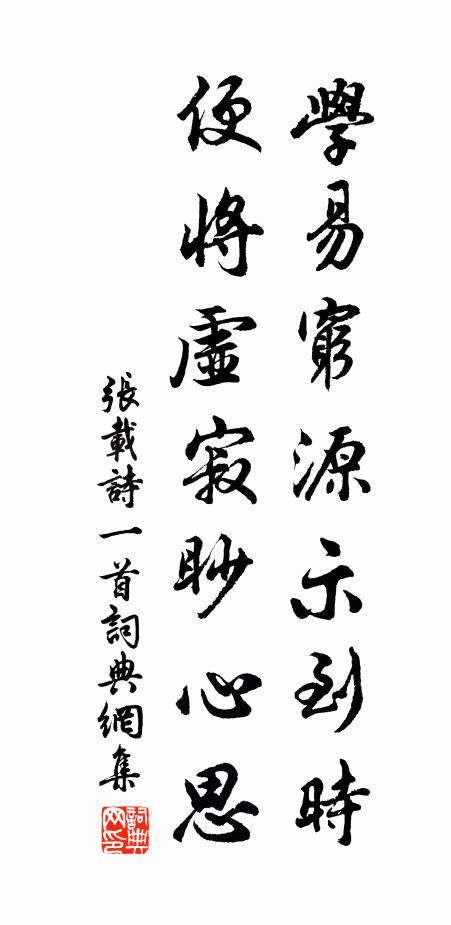 學易窮源示到時
便將虛寂眇心思
張載詩一首詞典網集
詞典网印